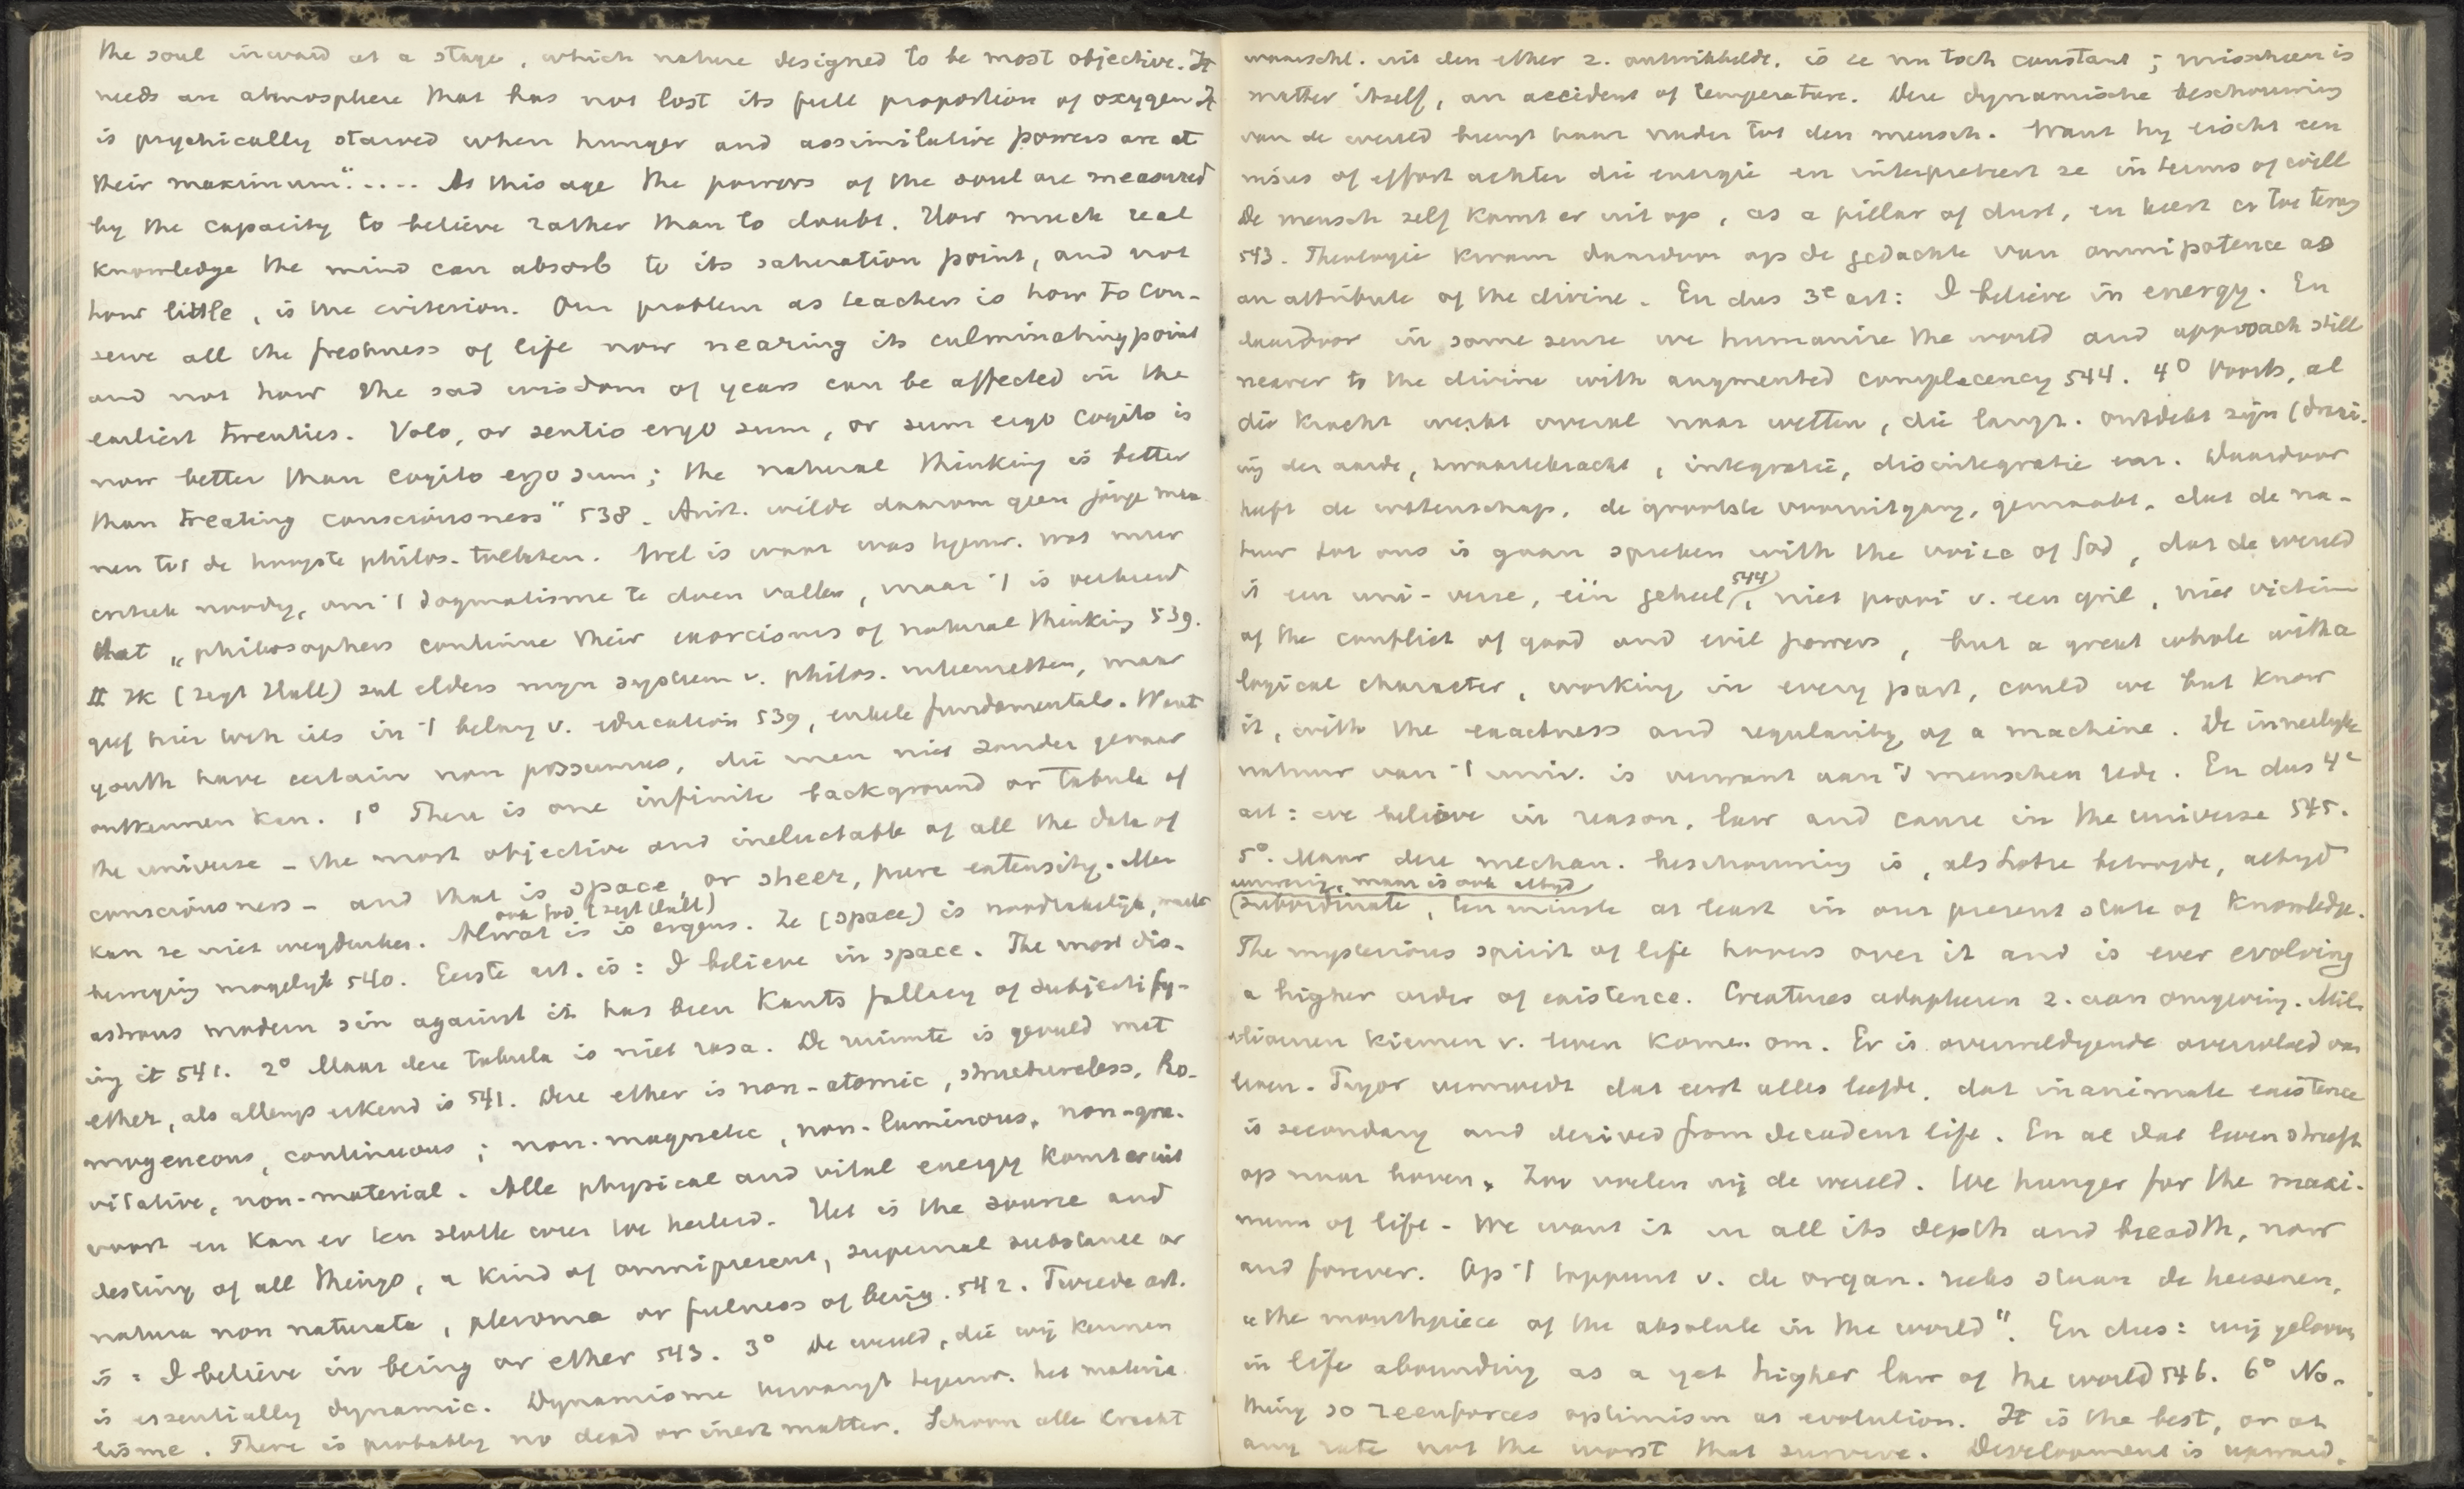 the soul inward at a stage, which nature designed to be most objective. It
needs an atmosphere that has not lost its full proportion of oxygen It
is psychically starved when hunger and assimilative powers are at
their maximum"..... At this age the powers of the soul are measured
by the capacity to believe rather than to doubt. How much real
knowledge the mind can absorb to its saturation point, and not
how little, is the criterion. Our problem as teachers is how to con-
serve all the freshness of life now nearing its culminating point
and not how the sad wisdom of years can be affected in the
earliest twenties. Volo, or sentio ergo sum, or sum ergo cogito is
now better than cogito ergo sum; the natural thinking is better
than treating consciousness" 538. Arist. wilde daarom geen jonge man-
nen tot de hoogste philos. toelaten. Wel is waar was tegenw. wat meer
critiek noodig, om 't dogmatisme te doen vallen, maar 't is verkeerd
that „philosophers continue their exorcisms of natural thinking 539.
II Ik (zegt Hall) zal elders mijn systeem v. philos. uiteenzetten, maar
geef hier toch iets in 't belang v. education 539, enkele fundamentals. Want
youth have certain non possumus, die men niet zonder gevaar
ontkennen kan. 1° There is one infinite background or tabula of
the universe - the most objective and ineluctable of all the data of
consciousness - and that is space, or sheer, pure extensity. Men
kan ze niet wegdenken. Alwat is ook God (zegt Hall) is ergens. Ze (space) is noodzakelijk, maakt
beweging mogelijk 540. Eerste art. is: I believe in space. The most dis-
astrous modern sin against it has been Kants fallacy of subjectify-
ing it 541. 2° Maar deze tabula is niet rasa. De ruimte is gevuld met
ether, als allengs erkend is 541. Deze ether is non-atomic, structureless, ho-
mogeneous, continuous; non-magnetic, non-luminous, non-gra-
vitative, non-material. Alle physical and vital energy komt er uit
voort en kan er ten slotte weer toe herleid. Het is the source and
destiny of all things, a kind of omnipresent, supernal substance or
natura non naturata, pleroma or fulness of being. 542. Tweede art.
is: I believe in being or ether 543. 3° De wereld, die wij kennen
is essentially dynamic. Dynamisme vervangt tegenw. het materia
lisme. There is probably no dead or inert matter. Schoon alle kracht
waarschl. uit den ether z. ontwikkelde, is ze nu toch constant; misschien is
matter itself, an accident of temperature. Deze dynamische beschouwing
van de wereld brengt haar nader tot den mensch. Want hij eischt een
nisus of effort achter die energie en interpreteert ze in terms of will
De mensch zelf komt er uit op, as a pillar of dust, en keert er toe terug
543. Theologie kwam daardoor op de gedachte van omnipotence as
an attribute of the divine. En dus 3e art: I believe in energy. En
daardoor in some sense we humanize the world and approach still
nearer to the divine with augmented complacency 544. 4° Voorts, al
die kracht werkt overal naar wetten, die langz. ontdekt zijn (draai-
ing der aarde, zwaartekracht, integratie, disintegratie enz. Daardoor
heeft de wetenschap, de grootste vooruitgang, gemaakt, dat de na-
tuur tot ons is gaan spreken with the voice of God, dat de wereld
is een uni-verse, één geheel 544), niet prooi v. een gril, niet victim
of the conflict of good and evil powers, but a great whole with a
logical character, working in every part, could we but know
it, with the exactness and regularity of a machine. De innerlijke
natuur van 't univ. is verwant aan 's menschen rede. En dus 4e
art: we believe in reason, law and cause in the universe 545.
5°. Maar deze mechan. beschouwing is, als Lotze betoogde, altijd
maar is ook altijd
(subordinate, ten minste at least in our present state of knowledge.
The mysterious spirit of life hovers over it and is ever evolving
a higher order of existence. Creatures adapteren z. aan omgeving. Mil-
lioenen kiemen v. leven komen om. Er is overweldigende overvloed van
leven. Tylor vermoedt dat eerst alles leefde, dat inanimate existence
is secondary and derived from decadent life. En al dat leven streeft
op naar boven. Zoo voelen wij de wereld. We hunger for the maxi-
mum of life - We want it in all its depth and breadth, now
and forever. Op 't toppunt v. de organ. reeks staan de hersenen,
„the mouthpiece of the absolute in the world". En dus: wij gelooven
in life abounding as a yet higher law of the world 546. 6° No-
thing so reenforces optimism as evolution. It is the best, or at
any rate not the worst that survive. Development is upward,